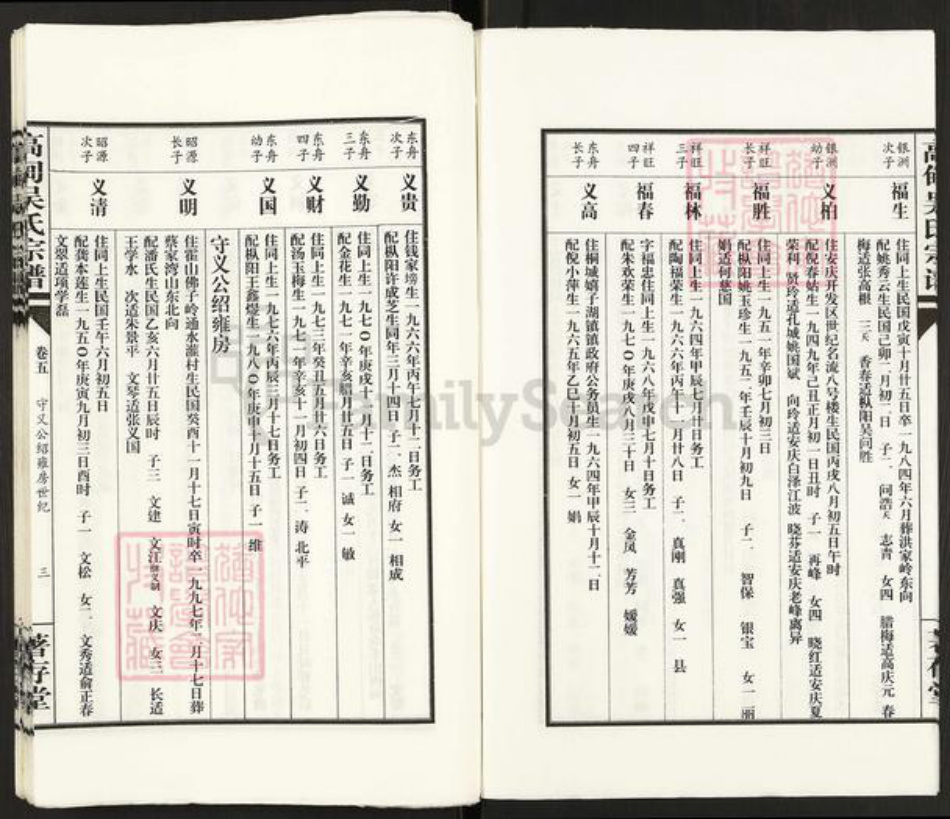 银洲
次子
福生
住同上生民国戊寅十月廿五日卒一九八四年六月葬洪家岭东向
配姚秀云生民国己卯二月初二日 子二 问浩夭 志青 女四 腊梅适高庆元 春
梅适张高根 三夭 香春适枞阳吴问胜
银洲
幼子
义柏
住安庆开发区世纪名流八号楼生民国丙戌八月初五日午时
配倪春姑生一九四九年己丑正月初一日丑时 子一 再峰 女四 晓红适安庆夏
荣利 贤玲适孔城姚国斌 向玲适安庆白泽江波 晓芬适安庆老峰离异
祥旺
长子
福胜
住同上生一九五一年辛卯七月初三日
配枞阳姚玉珍生一九五二年壬辰十月初九日 子二 智保 银宝 女一 丽
娟适何慈国
祥旺
三子
福林
住同上生一九六四年甲辰七月廿日务工
配陶福荣生一九六六年丙午十一月廿八日 子二 真刚 真强 女一 县
祥旺
四子
福春
字福忠住同上生一九六八年戊申七月十日务工
配朱欢荣生一九七〇年庚戌八月三十日 女三 金凤 芳芳 媛媛
东舟
长子
义高
住桐城嬉子湖镇政府公务员生一九六四年甲辰十月十二日
配倪小萍生一九六五年乙巳十月初五日 女一 娟
东舟
次子
义贵
住钱家塝生一九六六年丙午七月十二日务工
配枞阳许成芝生同年三月十四日 子二 杰 相府 女一 相成
东舟
三子
义勤
住同上生一九七〇年庚戌十一月十二日务工
配金花生一九七一年辛亥腊月廿五日 子一 诚 女一 敏
东舟
四子
义财
住同上生一九七三年癸丑五月廿六日务工
配汤玉梅生一九七一年辛亥十一月初四日 子二 涛 北平
东舟
幼子
义国
住同上生一九七六年丙辰三月十七日务工
配枞阳王鑫煜生一九八〇年庚申十月十五日 子一 维
守义公绍雍房
昭源
长子
义明
住霍山佛子岭通水滩村生民国癸酉十一月十七日寅时卒一九九七年二月十七日葬
蔡家湾山东北向
配潘氏生民国乙亥六月廿五日辰时 子三 文建 文江 文庆 女三 长适
王学水 次适朱景平 文琴适张义国
昭源
次子
义清
住同上生民国壬午六月初五日
配龚本莲生一九五〇年庚寅九月初三日酉时 子一 文松 女二 文秀适俞正春
文翠适项学磊
吴氏宗谱
卷五
守义公绍雍房世纪
三
著存堂
FamilySearch